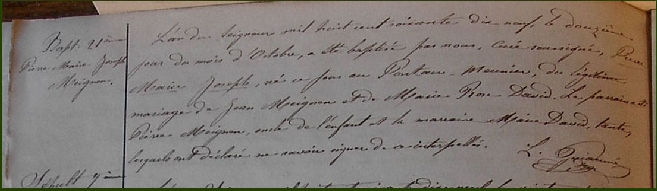 Bapt. 21ème
Pierre Marie Joseph
Moignon.
L'an du Seigneur mil huit cent soixante dix neuf le douzième
jour du mois d'Octobre, a été baptisé par nous, Curé soussigné, Pierre
Marie Joseph, né ce jour au Pontaux-Meunier, du légitime
mariage de Jean Moignon et de Marie Rose David. Le parrain a été
Pierre Moignon, oncle de l'enfant et la marraine Marie David, tante,
lesquels ont déclaré ne savoir signer de ce interpellés.
L.
7ème